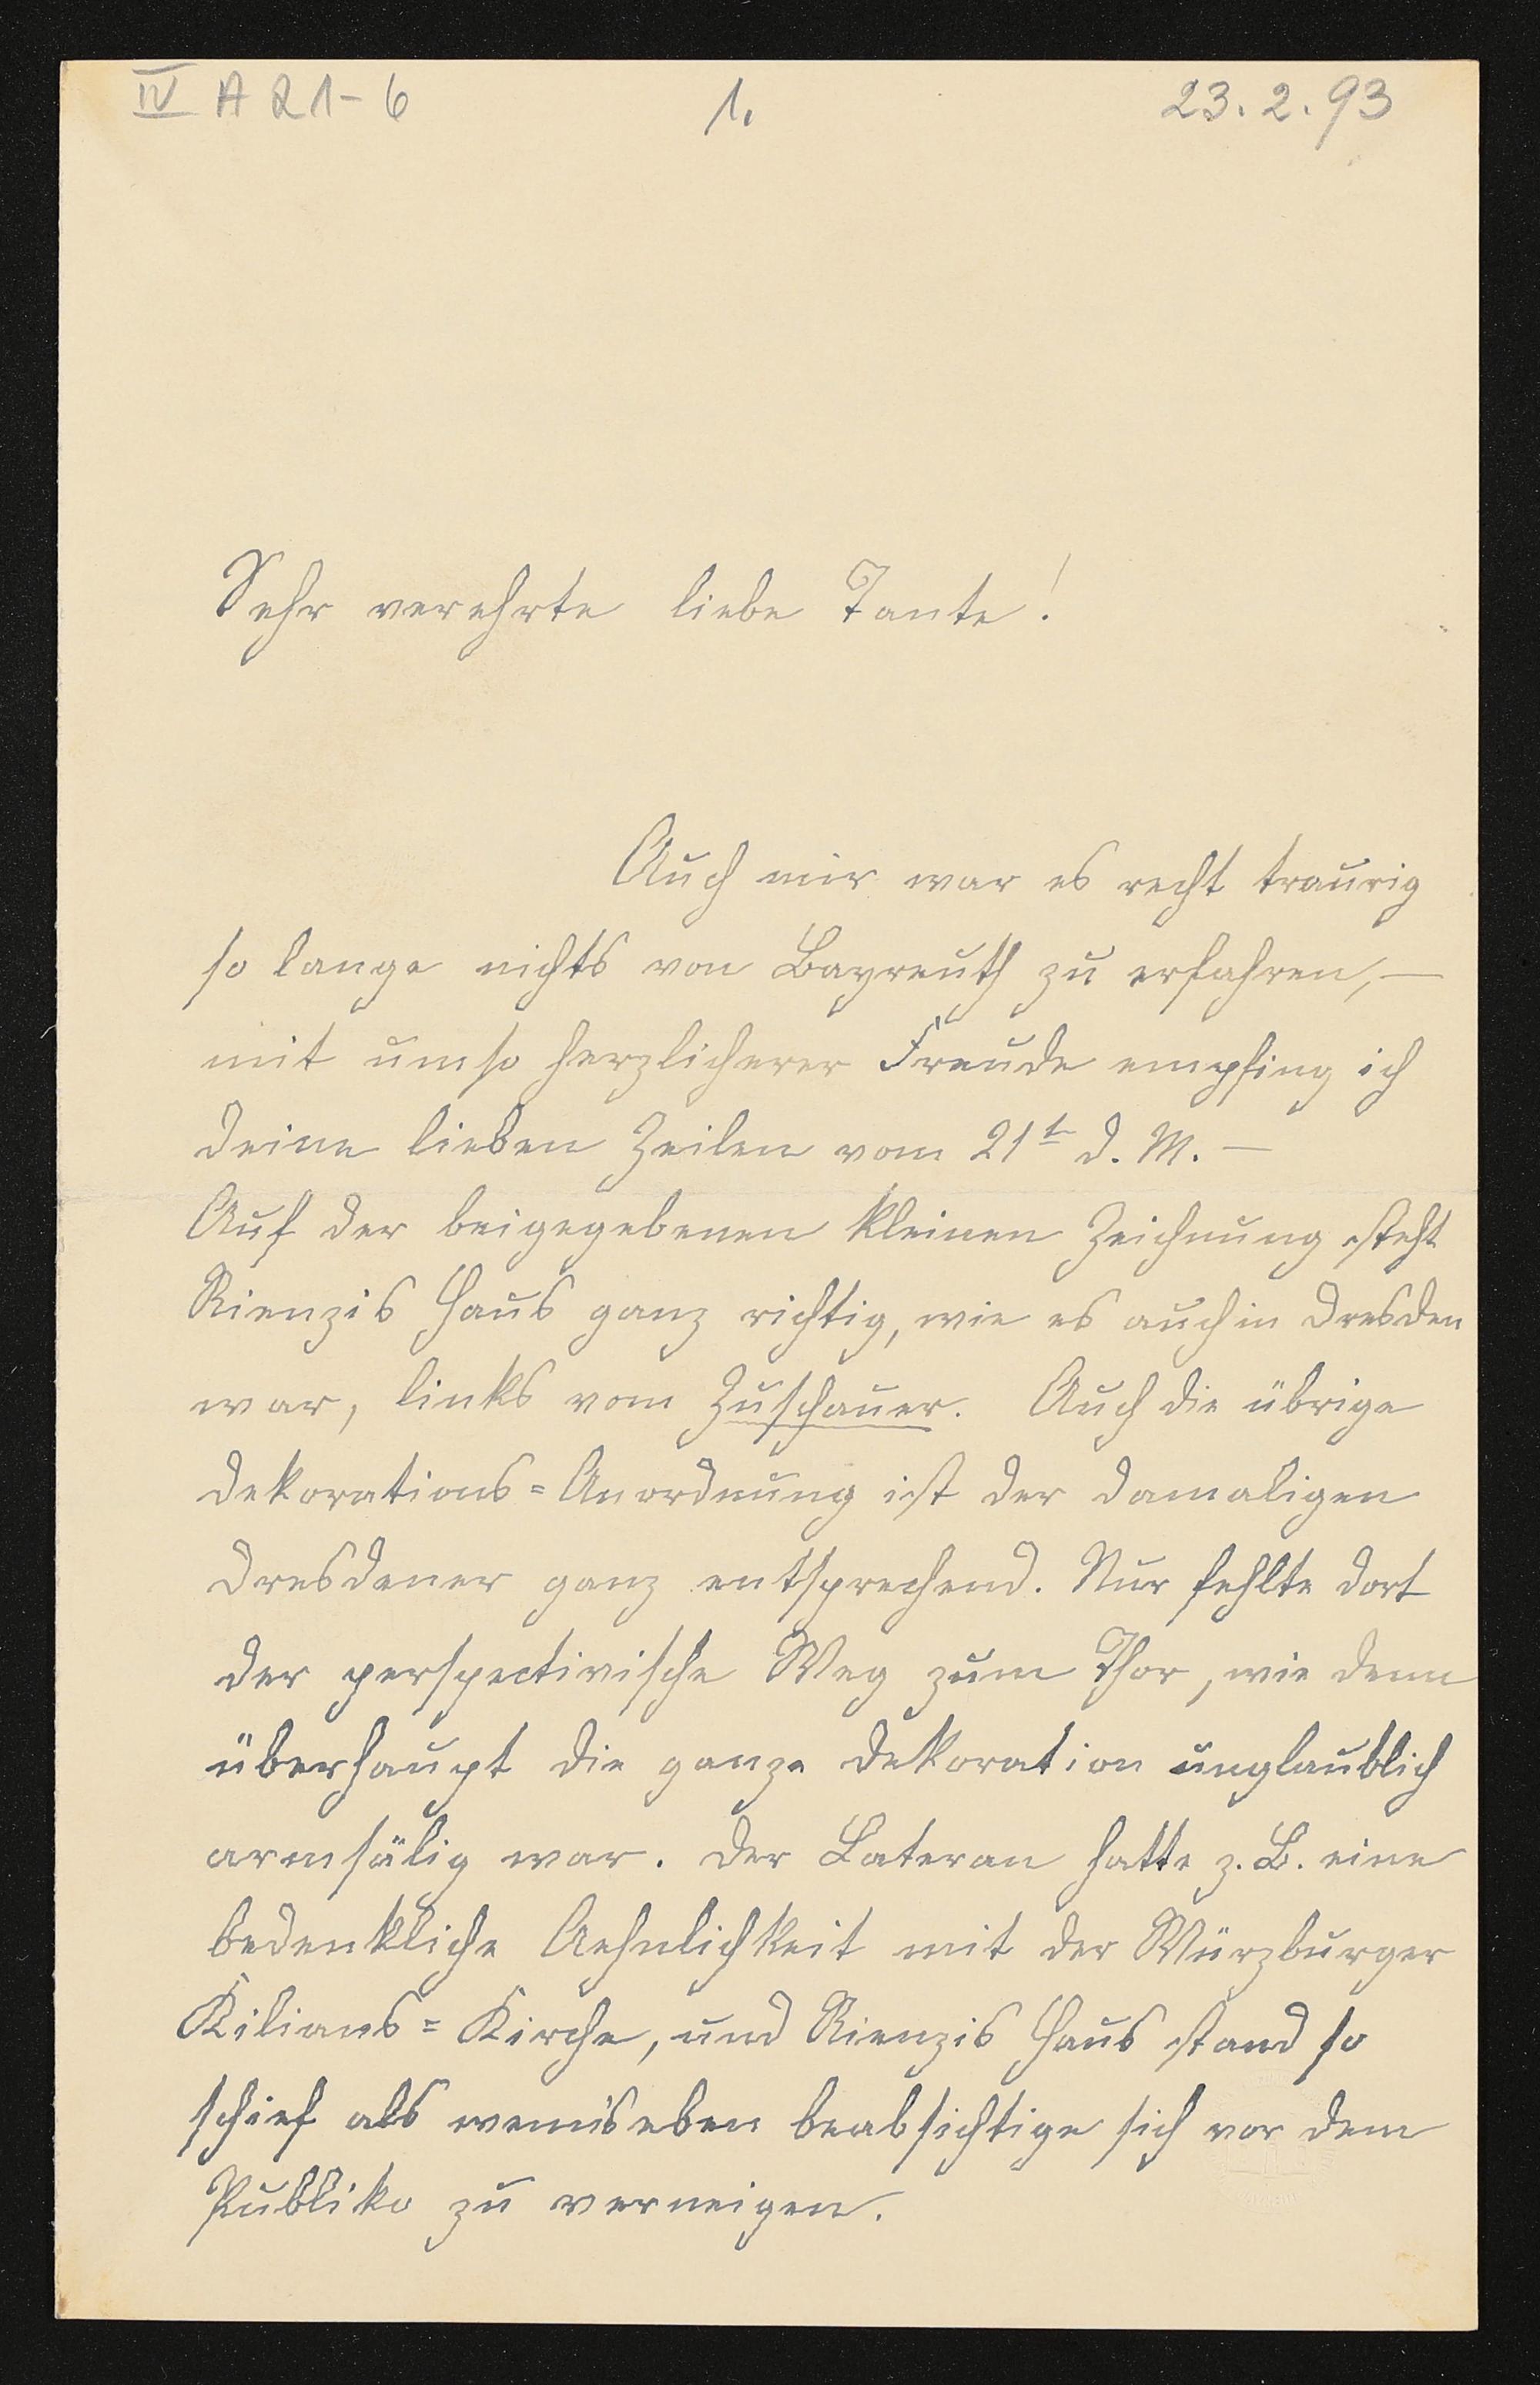 IV A 21-6 1. 23.2.93
Sehr verehrte liebe Tante!
Auch mir war es recht traurig
so lange nichts von Bayreuth zu erfahren, —
mit umso herzlicherer Freude empfing ich
Deine lieben Zeilen vom 21t d. M. —
Auf der beigegebenen kleinen Zeichnung steht
Rienzis Haus ganz richtig, wie es auch in Dresden
war, links vom Zuschauer. Auch die übrige
Dekorations=Anordnung ist der damaligen
Dresdener ganz entsprechend. Nur fehlte dort
der perspectivische Weg zum Thor, wie denn
überhaupt die ganze Dekoration unglaublich
armsälig war. Der Lateran hatte z. B. eine
bedenkliche Aehnlichkeit mit der Würzburger
Kilians=Kirche, und Rienzis Haus stand so
schief als wenn's eben beabsichtige sich vor dem
Publiko zu verneigen.